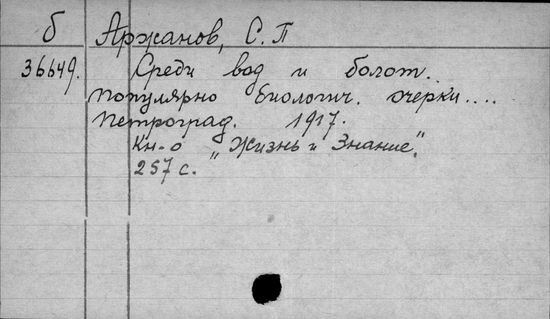 б Аржанов, С. П
36649. Среди вод и болот..
популярно биологич. очерки....
Петроград. 1917.
Кн-о "Жизнь и Знание".
257 с.